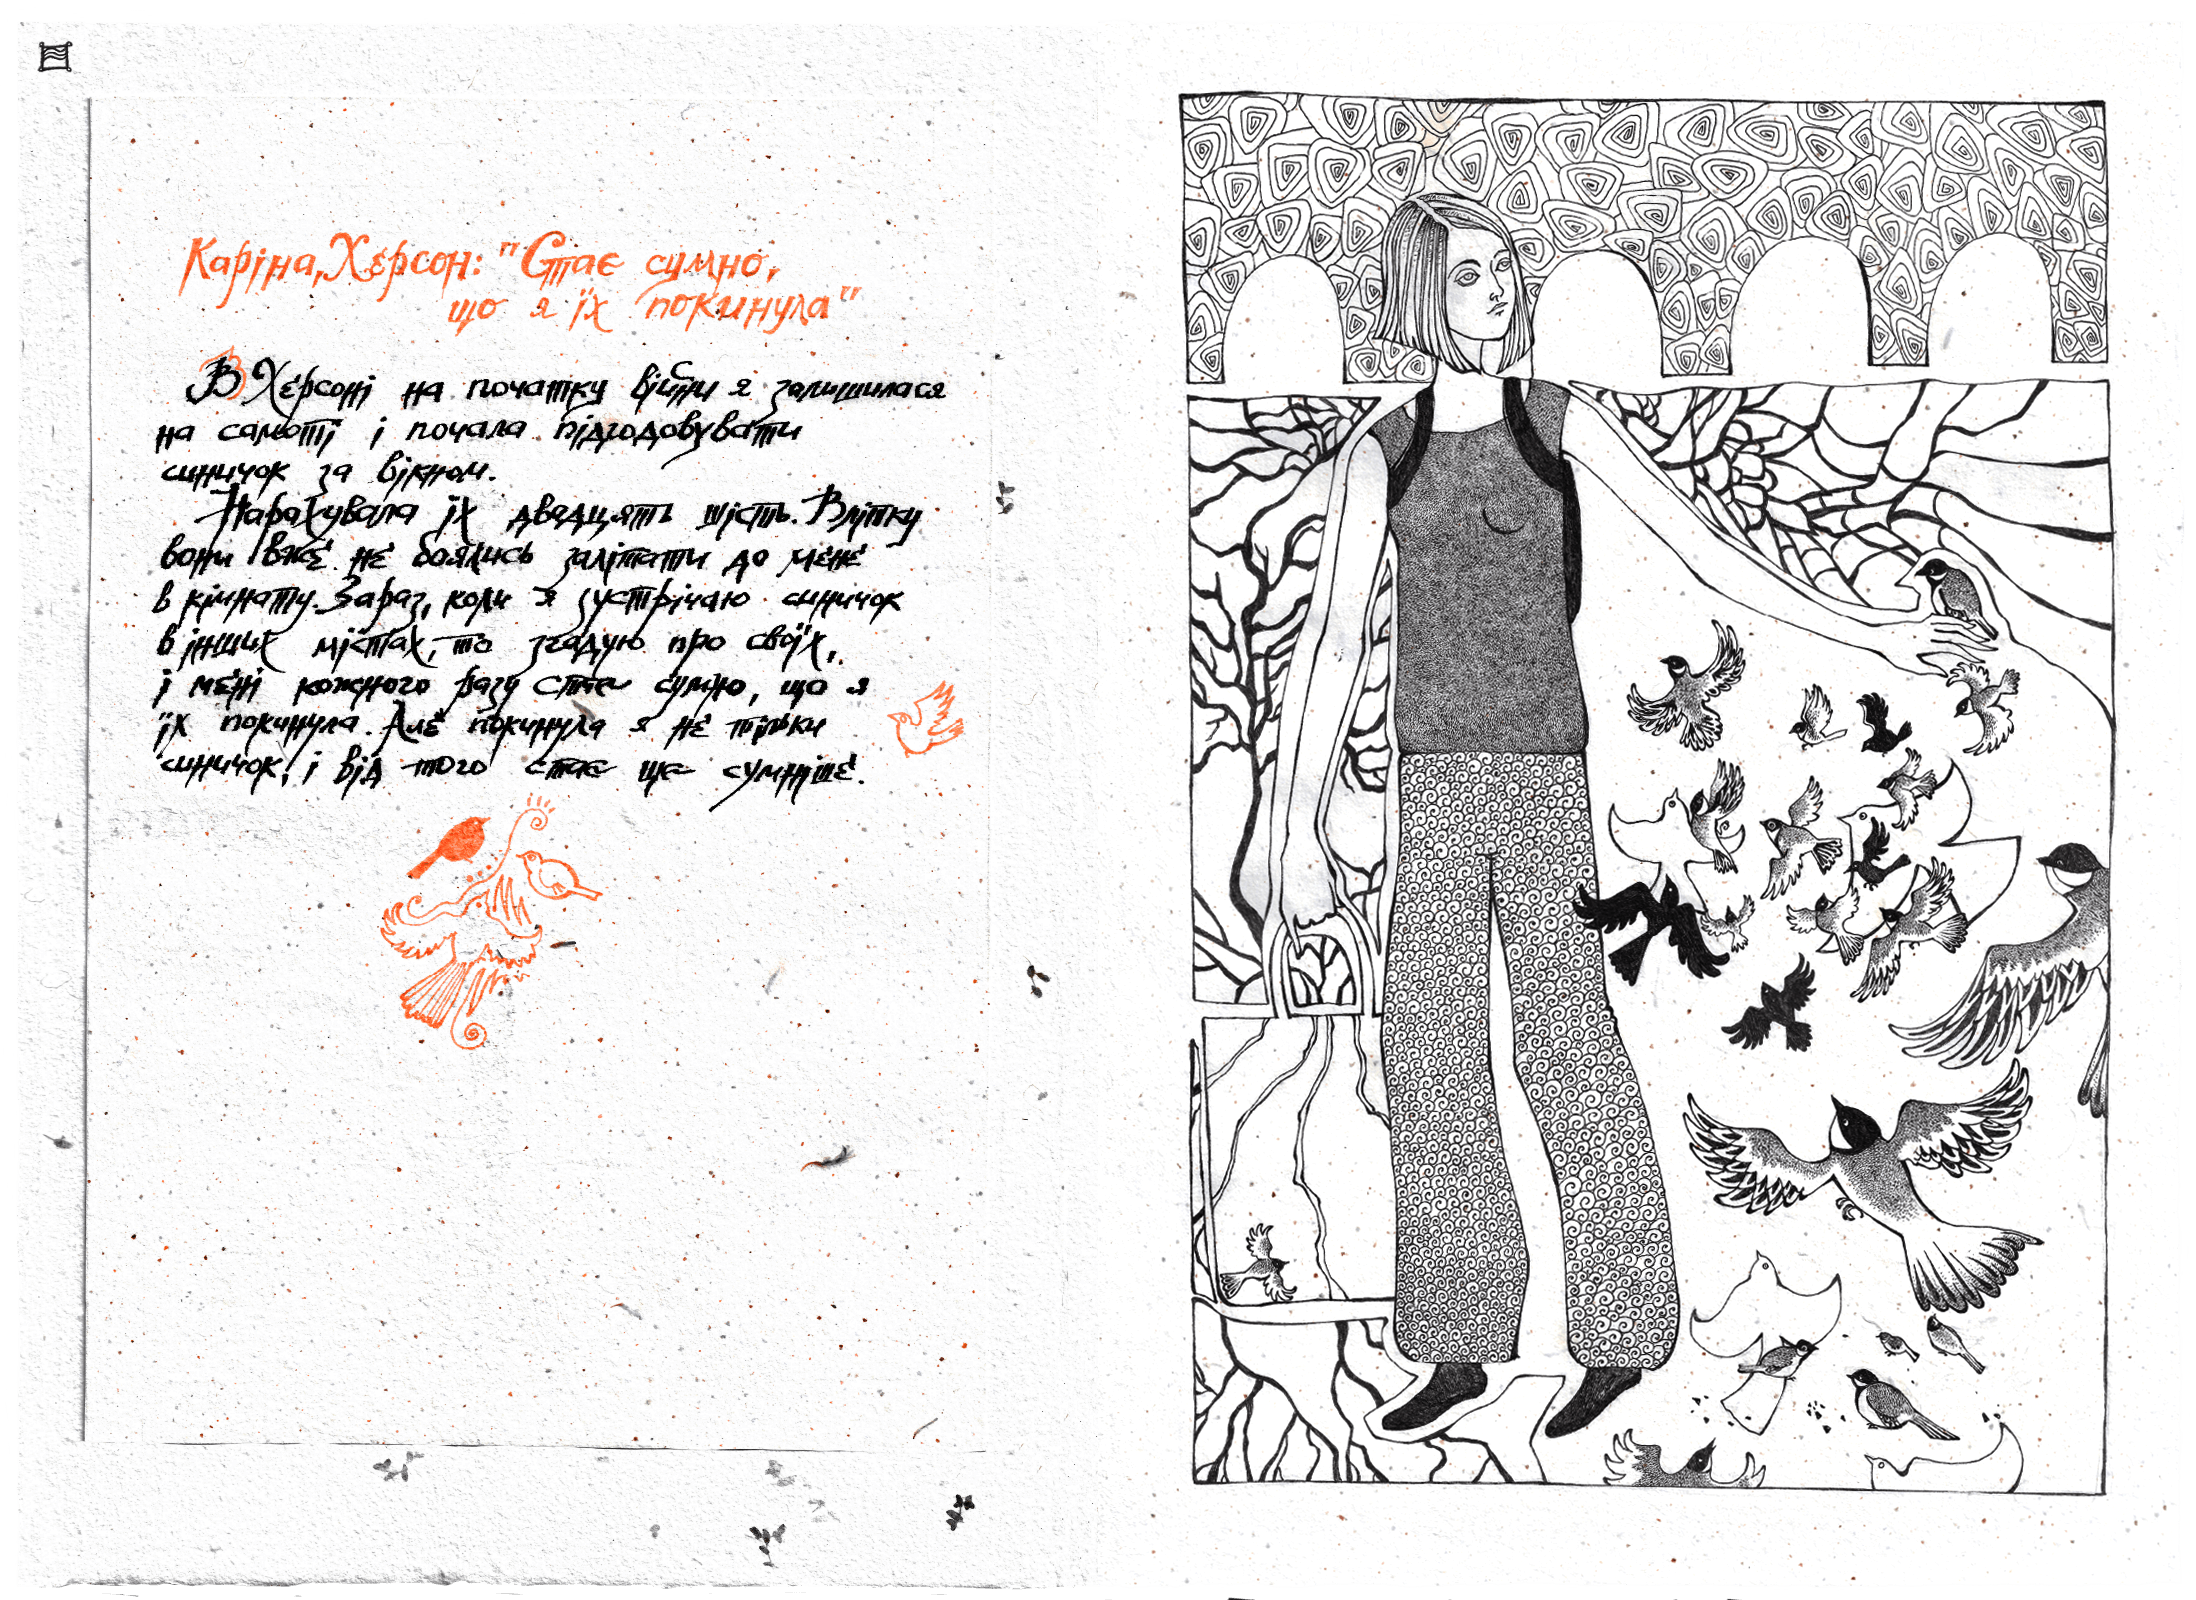 Каріна, Херсон: "Стає сумно,
що я їх покинула"
В Херсоні на початку війни я залишилася
на самоті і почала підгодовувати
синичок за вікном.
Нарахувала їх двадцять шість. Влітку
вони вже не боялись залітати до мене
в кімнату. Зараз, коли я зустрічаю синичок
в інших містах, то згадую про своїх,
і мені кожного разу стає сумно, що я
їх покинула. Але покинула я не тільки
синичок, і від того стає ще сумніше.